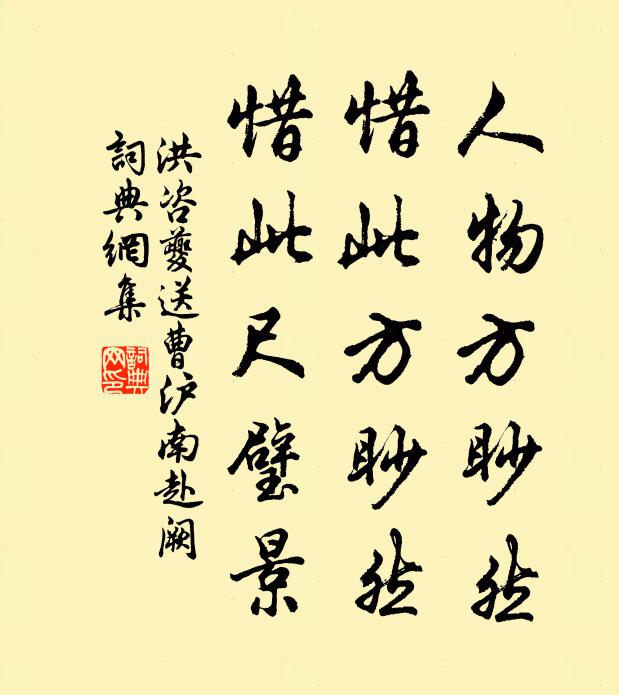 人物方眇然
惜此方眇然
惜此尺璧景
洪咨夔送曹沪南赴阙
詞典網集
詞典网印